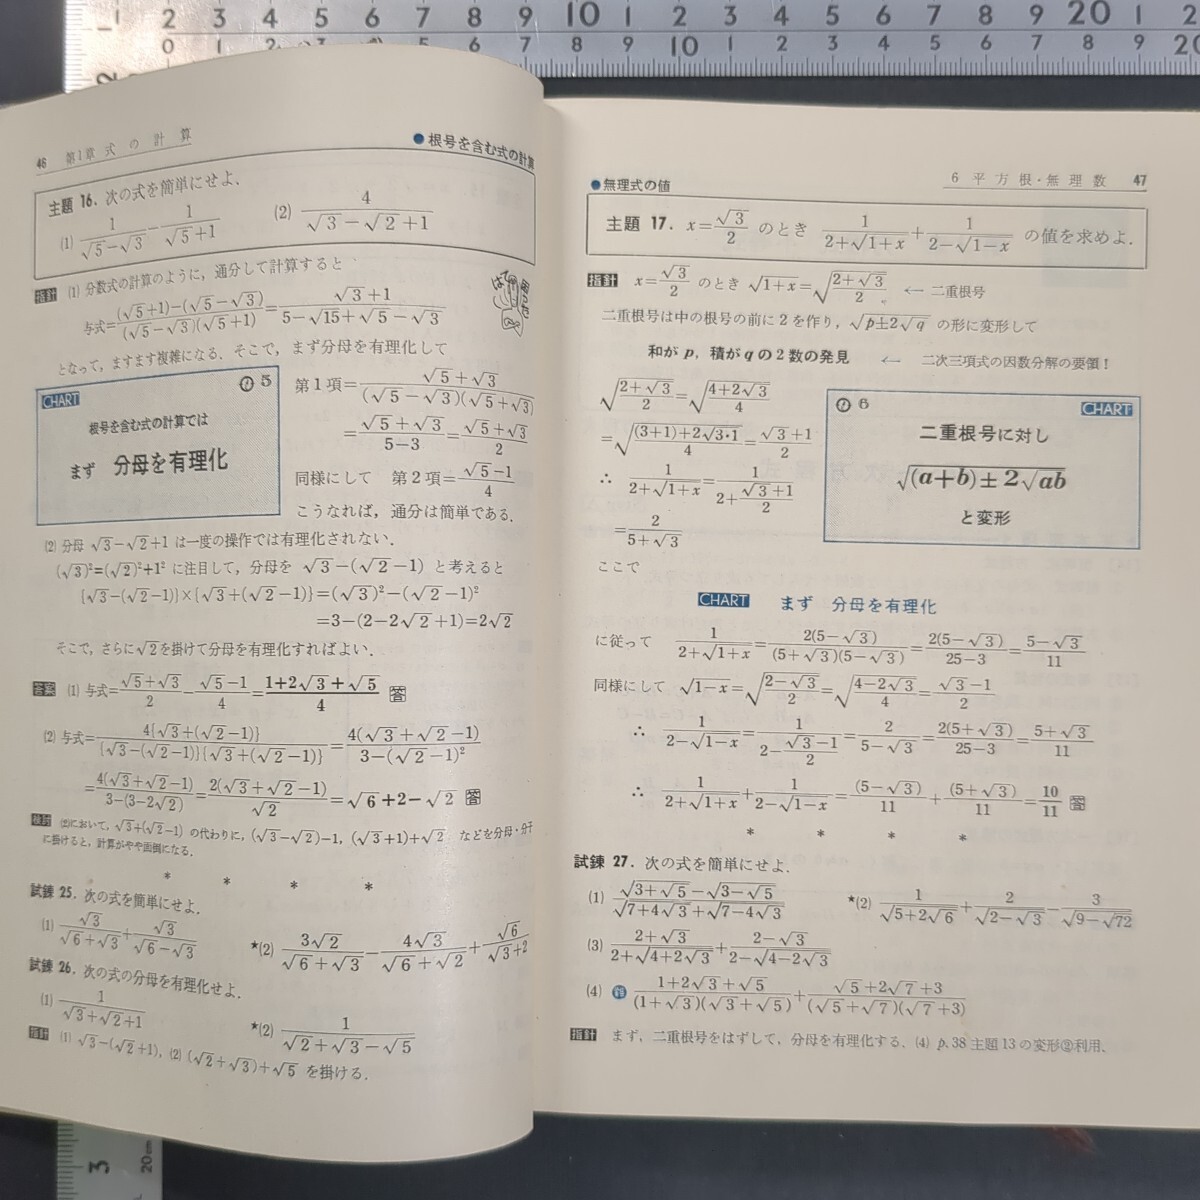 46 第1章 式の計算
●根号を含む式の計算
主題 16. 次の式を簡単にせよ.
(1) 1/(√5−√3) − 1/(√5+1)  (2) 4/(√3−√2+1)
指針 (1) 分数式の計算のように，通分して計算すると
与式=((√5+1)−(√5−√3))/((√5−√3)(√5+1))=(√3+1)/(5−√15+√5−√3)
となって，ますます複雑になる．そこで，まず分母を有理化して
CHART 5
根号を含む式の計算では
まず 分母を有理化
第1項=(√5+√3)/((√5−√3)(√5+√3))
=(√5+√3)/(5−3)=(√5+√3)/2
同様にして 第2項=(√5−1)/4
こうなれば，通分は簡単である．
(2) 分母 √3−√2+1 は一度の操作では有理化されない．
(√3)²=(√2)²+1² に注目して，分母を √3−(√2−1) と考えると
{√3−(√2−1)}×{√3+(√2−1)}=(√3)²−(√2−1)²
=3−(2−2√2+1)=2√2
そこで，さらに√2を掛けて分母を有理化すればよい．
答案 (1) 与式=(√5+√3)/2−(√5−1)/4=(1+2√3+√5)/4 答
(2) 与式=4{√3+(√2−1)}/({√3−(√2−1)}{√3+(√2−1)})=4(√3+√2−1)/(3−(√2−1)²)
=4(√3+√2−1)/(3−(3−2√2))=2(√3+√2−1)/√2=√6+2−√2 答
検討 (2)において，√3+(√2−1) の代わりに，(√3−√2)−1, (√3+1)+√2 などを分母・分子
に掛けると，計算がやや面倒になる．
* * * *
試錬 25. 次の式を簡単にせよ．
(1) √3/(√6+√3)+√3/(√6−√3)  ★(2) 3√2/(√6+√3)−4√3/(√6+√2)+√6/(√3+2)
試錬 26. 次の式の分母を有理化せよ．
(1) 1/(√3+√2+1)  ★(2) 1/(√2+√3−√5)
指針 (1) √3−(√2+1), (2) (√2+√3)+√5 を掛ける．
6 平方根・無理数 47
●無理式の値
主題 17. x=√3/2 のとき 1/(2+√(1+x))+1/(2−√(1−x)) の値を求めよ．
指針 x=√3/2 のとき √(1+x)=√((2+√3)/2) ← 二重根号
二重根号は中の根号の前に2を作り，√(p±2√q) の形に変形して
和が p, 積が q の2数の発見 ← 二次三項式の因数分解の要領！
√((2+√3)/2)=√((4+2√3)/4)
=√(((3+1)+2√(3・1))/4)=(√3+1)/2
∴ 1/(2+√(1+x))=1/(2+(√3+1)/2)
=2/(5+√3)
6 CHART
二重根号に対し
√((a+b)±2√ab)
と変形
ここで
CHART まず 分母を有理化
に従って 1/(2+√(1+x))=2(5−√3)/((5+√3)(5−√3))=2(5−√3)/(25−3)=(5−√3)/11
同様にして √(1−x)=√((2−√3)/2)=√((4−2√3)/4)=(√3−1)/2
∴ 1/(2−√(1−x))=1/(2−(√3−1)/2)=2/(5−√3)=2(5+√3)/(25−3)=(5+√3)/11
∴ 1/(2+√(1+x))+1/(2−√(1−x))=(5−√3)/11+(5+√3)/11=10/11 答
* * * *
試錬 27. 次の式を簡単にせよ．
(1) (√(3+√5)−√(3−√5))/(√(7+4√3)+√(7−4√3))  ★(2) 1/√(5+2√6)+2/√(2−√3)−3/√(9−√72)
(3) (2+√3)/(2+√(4+2√3))+(2−√3)/(2−√(4−2√3))
(4) (1+2√3+√5)/((1+√3)(√3+√5))+(√5+2√7+3)/((√5+√7)(√7+3))
指針 まず，二重根号をはずして，分母を有理化する．(4) p.38 主題13の変形②利用．